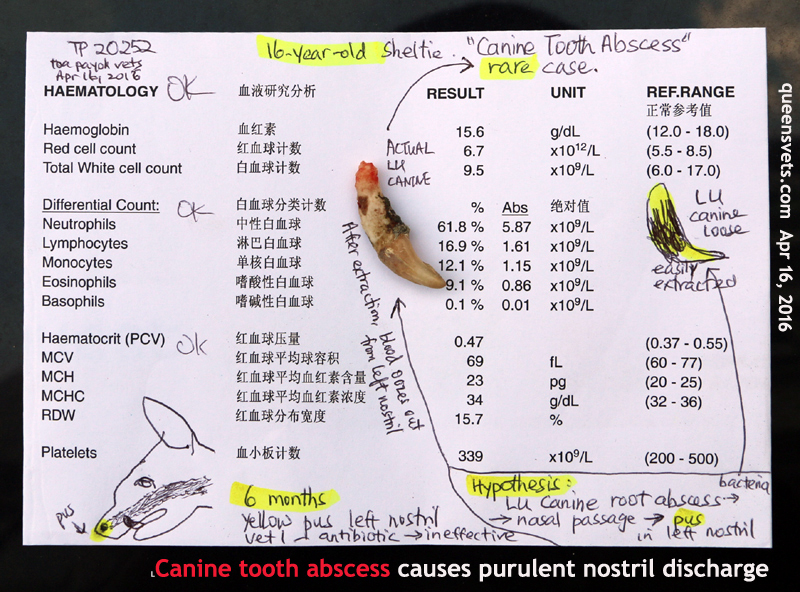 TP 20252
toa payoh vets
Apr 16, 2016
16-year-old Sheltie. "Canine Tooth Abscess"
rare case.
HAEMATOLOGY OK 血液研究分析 RESULT UNIT REF.RANGE
正常参考值
Haemoglobin 血红素 15.6 g/dL (12.0 - 18.0)
Red cell count 红血球计数 6.7 x10¹²/L (5.5 - 8.5)
Total White cell count 白血球计数 9.5 x10⁹/L (6.0 - 17.0)
ACTUAL
LU
CANINE
Differential Count: OK 白血球分类计数 % Abs 绝对值
Neutrophils 中性白血球 61.8 % 5.87 x10⁹/L
Lymphocytes 淋巴白血球 16.9 % 1.61 x10⁹/L
Monocytes 单核白血球 12.1 % 1.15 x10⁹/L
Eosinophils 嗜酸性白血球 9.1 % 0.86 x10⁹/L
Basophils 嗜碱性白血球 0.1 % 0.01 x10⁹/L
LU
canine
loose
easily
extracted
After extraction, blood oozes out
from left nostril
Haematocrit (PCV) OK 红血球压量 0.47 (0.37 - 0.55)
MCV 红血球平均球容积 69 fL (60 - 77)
MCH 红血球平均血红素含量 23 pg (20 - 25)
MCHC 红血球平均血红素浓度 34 g/dL (32 - 36)
RDW 红血球分布宽度 15.7 %
Platelets 血小板计数 339 x10⁹/L (200 - 500)
pus
6 months
yellow pus left nostril
vet 1 → antibiotic → ineffective
Hypothesis: bacteria
LU Canine root abscess →
→ nasal passage → pus
in left nostril
queensvets.com Apr 16, 2016
Canine tooth abscess causes purulent nostril discharge